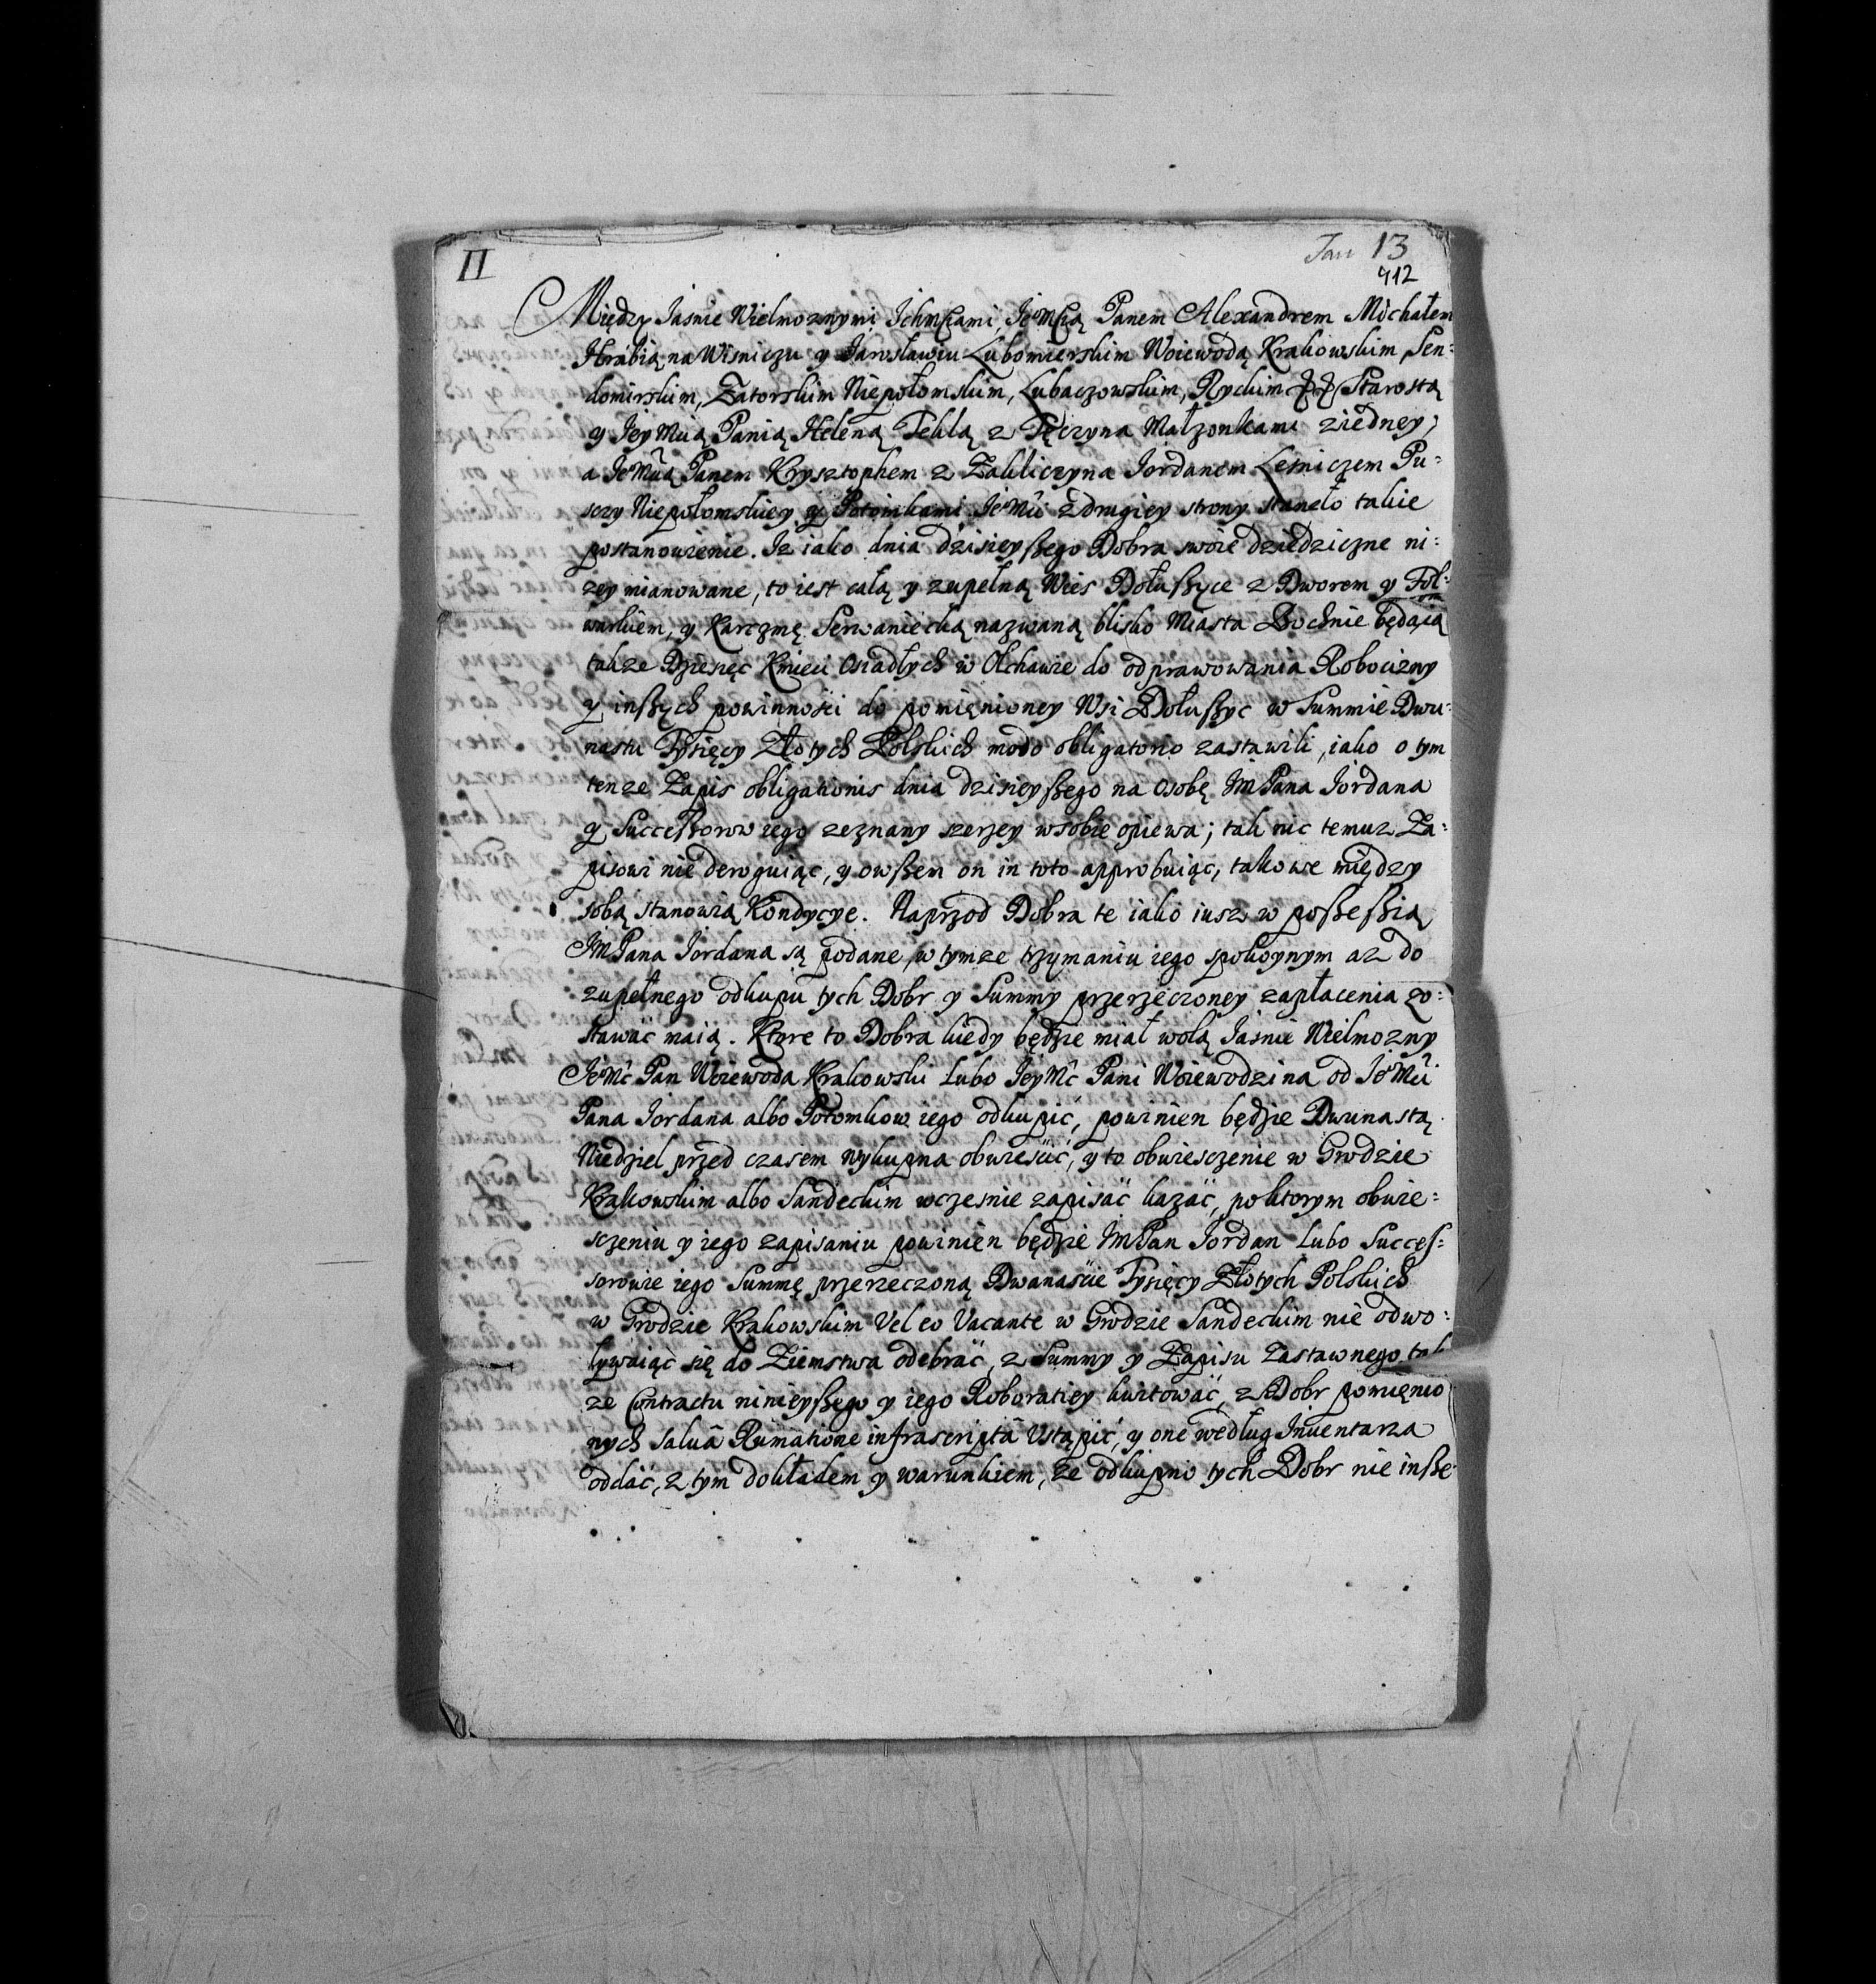 II
Jan 13
412
Między Jaśnie Wielmoznymi Ichmciami, JeoMcią Panem Alexandrem Michałem
Hrabią na Wisniczu y Jarosławiu Lubomierskim Woiewodą Krakowskim Sen:
domirskim, Zatorskim Niepołomskim, Lubaczowskim, Ryckim Starostą
y Jey Mcią Panią Heleną Teklą z Tęczyna Małzonkami ziedney;
a JeoMcią Panem Krysztophem z Zakliczyna Jordanem Lesniczem Pu:
sczy Niepołomskiey y Potomkami JeoMci zdrugiey strony staneło takie
postanowienie. Iz iako dnia dzisieyszego Dobra swoie dziedziczne ni:
zey mianowane, to iest całą y zupełną Wies Dołuszyce z Dworem y Fol:
warkiem, y Karczmę Serwaniecką nazwaną blisko Miasta Bochnie będącą
takze Dziesięc Kmieci Osiadłych w Olchawie do odprawowania Robocizny
y inszych powinności do pomienioney Wsi Dołuszyc w Summie Dwu:
nastu Tysięcy Złotych Polskich modo obligatorio zastawili, iako o tym
tenze Zapis obligationis dnia dzisieyszego na osobę JmPana Jordana
y Successorow iego zeznany szerzey wsobie opiewa; tak nic temuz Za:
pisowi nie deroguiąc, y owszem on in toto approbuiąc, takowe między
sobą stanowią Kondycye. Naprzod Dobra te iako iusz w possessią
JmPana Jordana są podane, w tymze trzymaniu iego spokoynym az do
zupełnego odkupu tych Dobr y Summy przerzeczoney zapłacenia zo:
stawać maią. Ktore to Dobra kiedy będzie miał wolą Jaśnie Wielmozny
JeoMć Pan Woiewoda Krakowski lubo JeyMć Pani Woiewodzina od JeoMci
Pana Jordana albo Potomkow iego odkupić, powinien będzie Dwunastą
Niedziel przed czasem wykupna obwieścić, y to obwiesczenie w Grodzie
Krakowskim albo Sandeckim wczesnie zapisać kazać, po ktorym obwie:
sczeniu y iego zapisaniu powinien będzie JmPan Jordan lubo Succes:
sorowie iego Summę przerzeczoną Dwanaście Tysięcy Złotych Polskich
w Grodzie Krakowskim Vel eo Vacante w Grodzie Sandeckim nie odwo:
ływaiąc się do Ziemstwa odebrać, z Summy y Zapisu Zastawnego tak
ze Contractu ninieyszego y iego Roboratiey kwitować, z Dobr pomienio
nych salua Rumatione infrascripta Vstąpić, y one według Inuentarza
oddać, z tym dokładem y warunkiem, ze odkupno tych Dobr nie insze